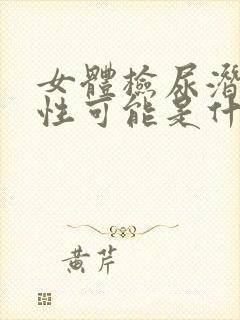 女體檢尿潛
性可能是什
黃芹